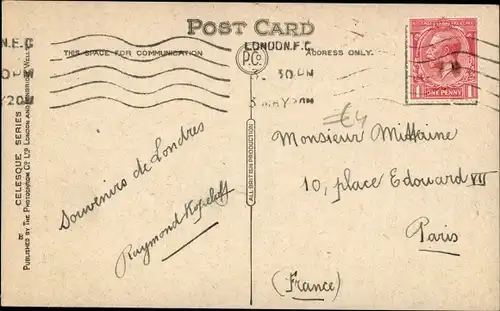 POST CARD
THIS SPACE FOR COMMUNICATION
ADDRESS ONLY.
P.Co.
LONDON.F.C.
30 PM
3 MAY
N.E.C
0 PM
Y20
ONE PENNY
€4
Souvenirs de Londres
Raymond Kopeloff
Monsieur Mittaine
10, place Edouard VII
Paris
(France)
ALL BRITISH PRODUCTION
8 CELESQUE SERIES
PUBLISHED BY THE PHOTOCHROM CO. LTD. LONDON AND TUNBRIDGE WELLS